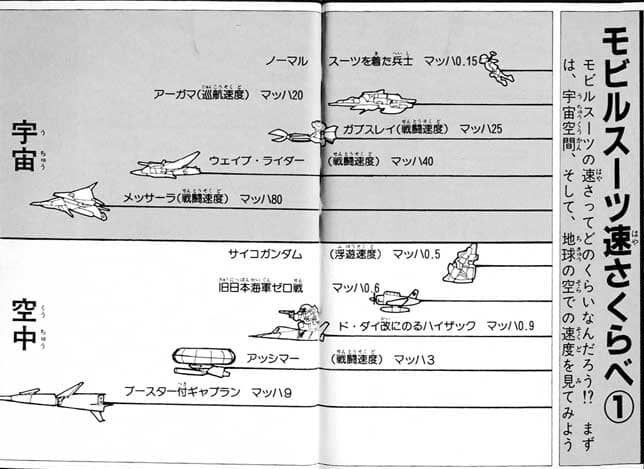 モビルスーツ速さくらべ①
モビルスーツの速さってどのくらいなんだろう!? まず
は、宇宙空間、そして、地球の空での速度を見てみよう
宇宙
ノーマルスーツを着た兵士 マッハ0.15
アーガマ(巡航速度) マッハ20
ガブスレイ(戦闘速度) マッハ25
ウェイブ・ライダー(戦闘速度) マッハ40
メッサーラ(戦闘速度) マッハ80
空中
サイコガンダム(浮遊速度) マッハ0.5
旧日本海軍ゼロ戦 マッハ0.6
ド・ダイ改にのるハイザック マッハ0.9
アッシマー(戦闘速度) マッハ3
ブースター付ギャプラン マッハ9